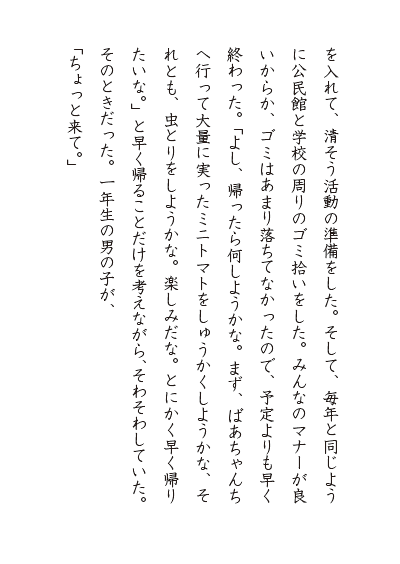 を入れて、清そう活動の準備をした。そして、毎年と同じよう
に公民館と学校の周りのゴミ拾いをした。みんなのマナーが良
いからか、ゴミはあまり落ちてなかったので、予定よりも早く
終わった。「よし、帰ったら何しようかな。まず、ばあちゃんち
へ行って大量に実ったミニトマトをしゅうかくしようかな、そ
れとも、虫とりをしようかな。楽しみだな。とにかく早く帰り
たいな。」と早く帰ることだけを考えながら、そわそわしていた。
そのときだった。一年生の男の子が、
「ちょっと来て。」